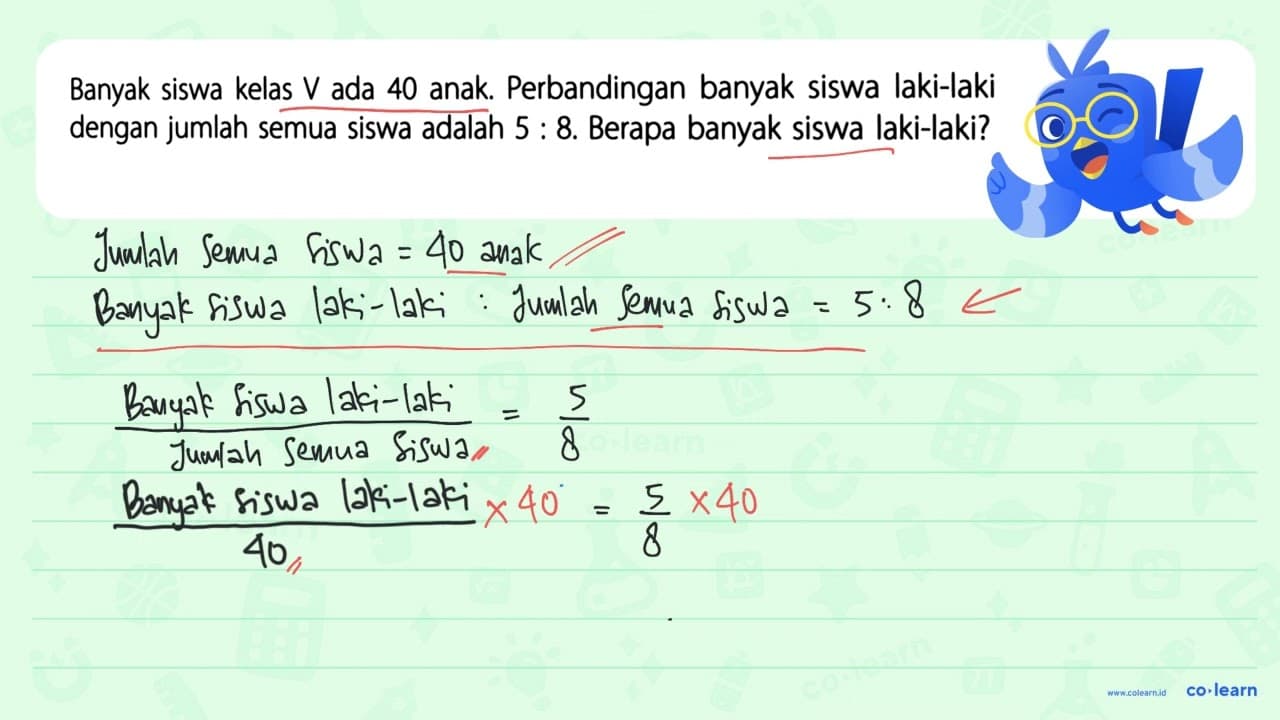 Banyak siswa kelas V ada 40 anak. Perbandingan banyak siswa laki-laki
dengan jumlah semua siswa adalah 5 : 8. Berapa banyak siswa laki-laki?
Jumlah semua siswa = 40 anak
Banyak siswa laki-laki : Jumlah semua siswa = 5 : 8
Banyak siswa laki-laki / Jumlah semua siswa = 5 / 8
Banyak siswa laki-laki / 40 × 40 = 5 / 8 × 40
www.colearn.id co·learn